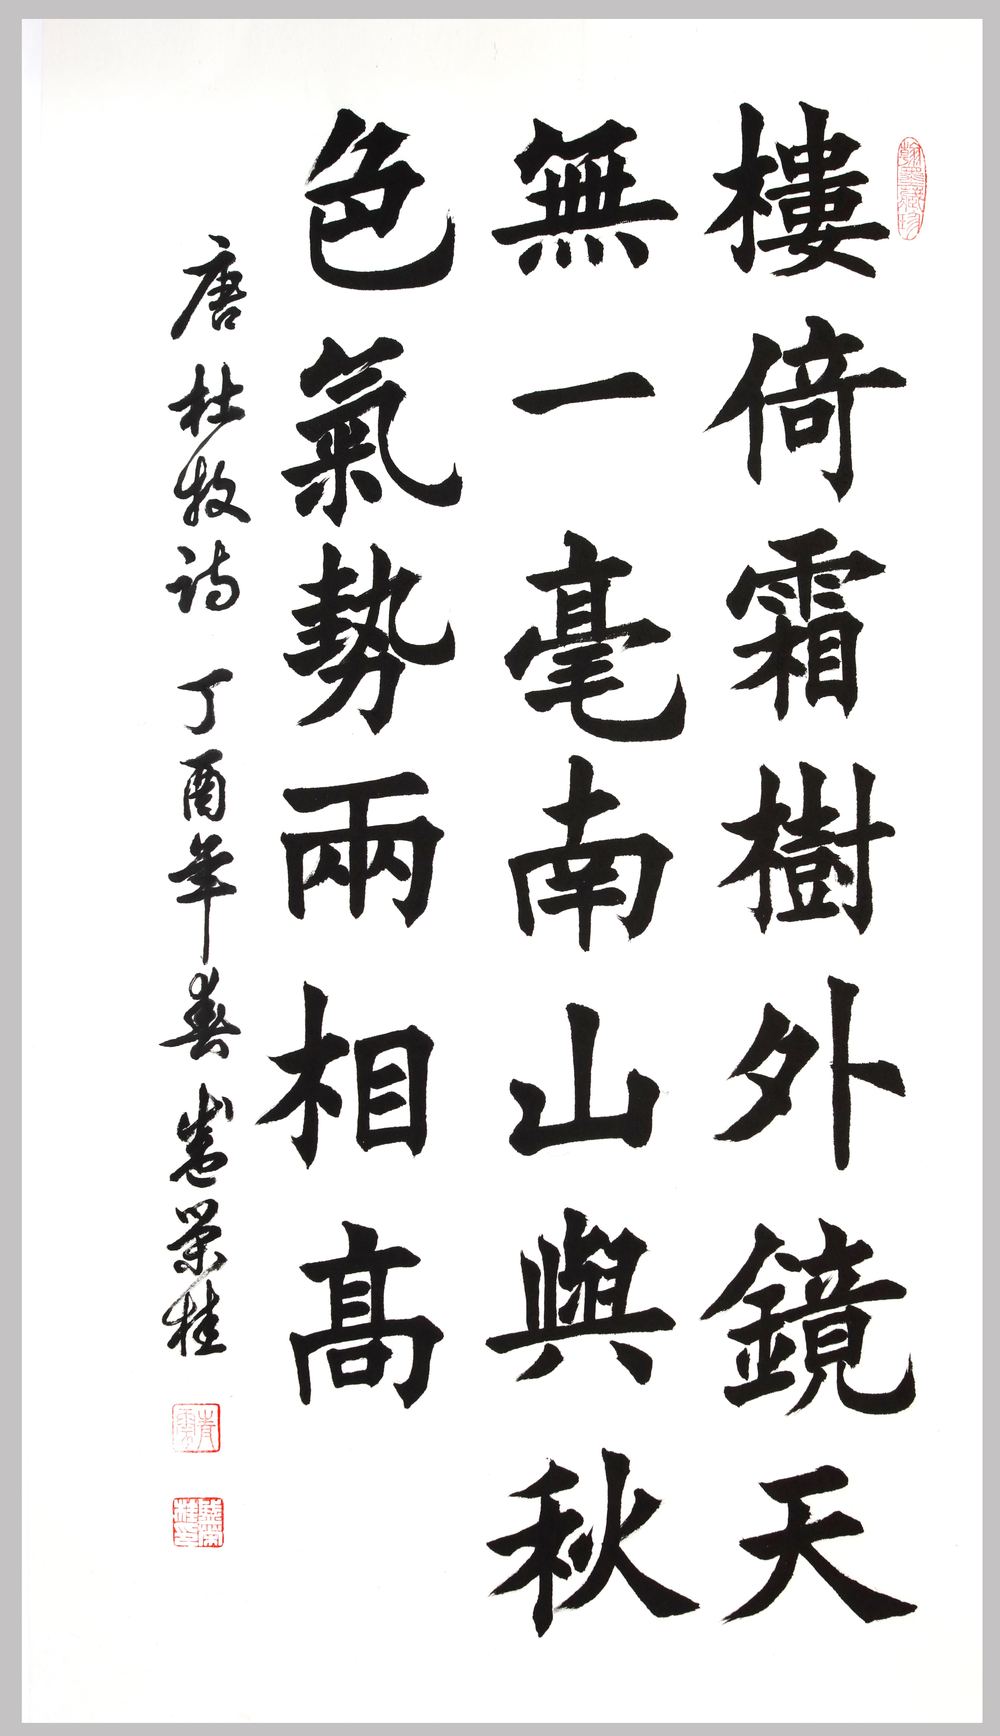 樓倚霜樹外鏡天
無一毫南山與秋
色氣勢兩相高
唐杜牧诗 丁酉年春 盛荣桂